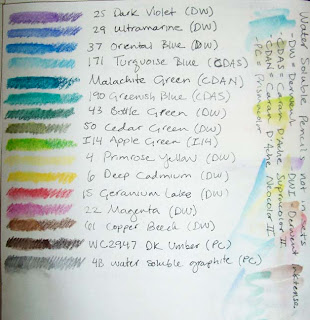 25 Dark Violet (DW)
29 Ultramarine (DW)
37 Oriental Blue (DW)
171 Turquoise Blue (CDAS)
Malachite Green (CDAN)
190 Greenish Blue (CDAS)
43 Bottle Green (DW)
50 Cedar Green (DW)
I14 Apple Green (I14)
4 Primrose Yellow (DW)
6 Deep Cadmium (DW)
15 Geranium Lake (DW)
22 Magenta (DW)
61 Copper Beech (DW)
WC2947 DK Umber (PC)
4B water soluble graphite (PC)
Water Soluble Pencil not in sets
-DW = Derwent DWI = Derwent Inktense
-CDAS = Caran D'Ache Supracolor II
-CDAN = Caran D'Ache Neocolor II
-PC = Prismacolor